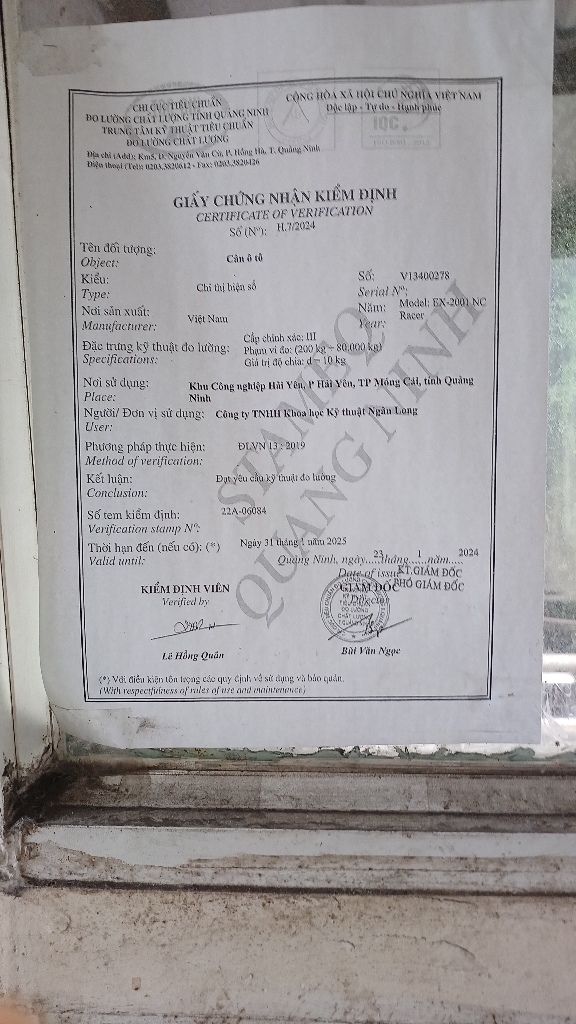 CHI CỤC TIÊU CHUẨN
ĐO LƯỜNG CHẤT LƯỢNG TỈNH QUẢNG NINH
TRUNG TÂM KỸ THUẬT TIÊU CHUẨN
ĐO LƯỜNG CHẤT LƯỢNG
Địa chỉ (Add): Km5, Đ. Nguyễn Văn Cừ, P. Hồng Hà, T. Quảng Ninh
Điện thoại (Tel): 0203.3820612 - Fax: 0203.3820426
CỘNG HÒA XÃ HỘI CHỦ NGHĨA VIỆT NAM
Độc lập - Tự do - Hạnh phúc
IQC
GIẤY CHỨNG NHẬN KIỂM ĐỊNH
CERTIFICATE OF VERIFICATION
Số (Nº): H.7/2024
Tên đối tượng: Cân ô tô
Object:
Kiểu: Chỉ thị hiện số Số: V13400278
Type: Serial Nº:
Nơi sản xuất: Việt Nam Năm: Model: EX-2001 NC
Manufacturer: Year: Racer
Đặc trưng kỹ thuật đo lường: Cấp chính xác: III
Specifications: Phạm vi đo: (200 kg ÷ 80.000 kg)
Giá trị độ chia: d = 10 kg
Nơi sử dụng: Khu Công nghiệp Hải Yên, P Hải Yên, TP Móng Cái, tỉnh Quảng
Place: Ninh
Người/ Đơn vị sử dụng: Công ty TNHH Khoa học Kỹ thuật Ngân Long
User:
Phương pháp thực hiện: ĐLVN 13 : 2019
Method of verification:
Kết luận: Đạt yêu cầu kỹ thuật đo lường
Conclusion:
Số tem kiểm định: 22A-06084
Verification stamp Nº:
Thời hạn đến (nếu có): (*) Ngày 31 tháng 1 năm 2025
Valid until: Quảng Ninh, ngày 23 tháng 1 năm 2024
Date of issue
KT.GIÁM ĐỐC
KIỂM ĐỊNH VIÊN GIÁM ĐỐC PHÓ GIÁM ĐỐC
Verified by Director
Lê Hồng Quân Bùi Văn Ngọc
(*) Với điều kiện tôn trọng các quy định về sử dụng và bảo quản.
(With respectfulness of rules of use and maintenance)
STAMEQ
QUANG NINH